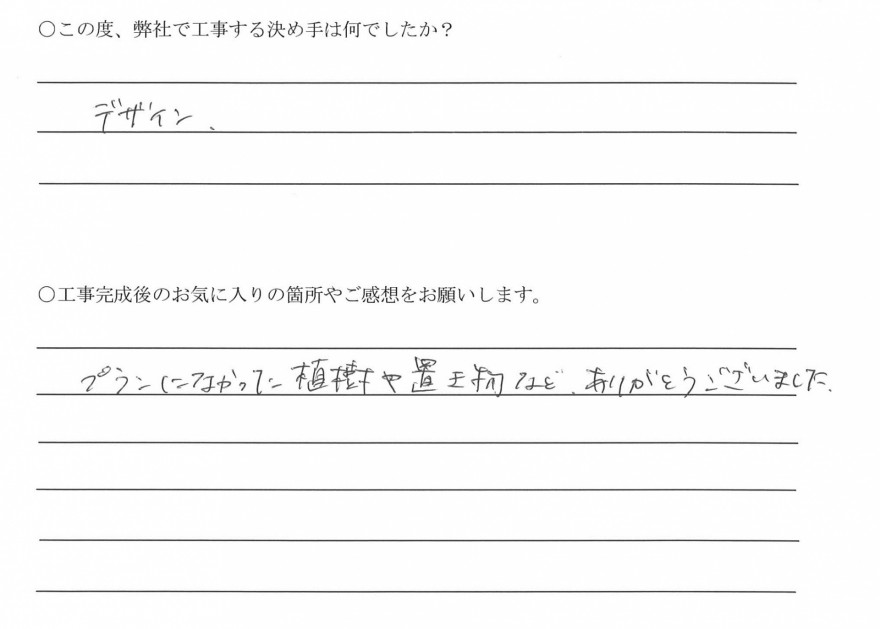 ○この度、弊社で工事する決め手は何でしたか？
デザイン、
○工事完成後のお気に入りの箇所やご感想をお願いします。
プランになかった植樹や置き物など、ありがとうございました。